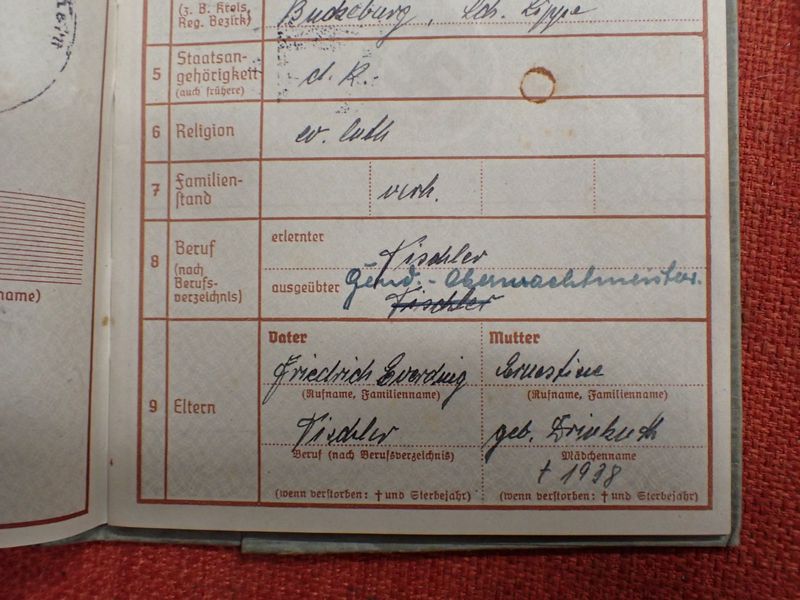 (z. B. Kreis,
Reg. Bezirk)
Bückeburg, Sch. Lippe
5 Staatsan-
gehörigkeit
(auch frühere)
d. R.
6 Religion
ev. luth
7 Familien-
stand
verh.
8 Beruf
(nach
Berufs-
verzeichnis)
erlernter
Tischler
ausgeübter
Gend.-Oberwachtmeister.
Tischler
9 Eltern
Vater
Friedrich Everding
(Rufname, Familienname)
Tischler
Beruf (nach Berufsverzeichnis)
(wenn verstorben: † und Sterbejahr)
Mutter
Ernestine
(Rufname, Familienname)
geb.
Mädchenname
† 1938
(wenn verstorben: † und Sterbejahr)
name)